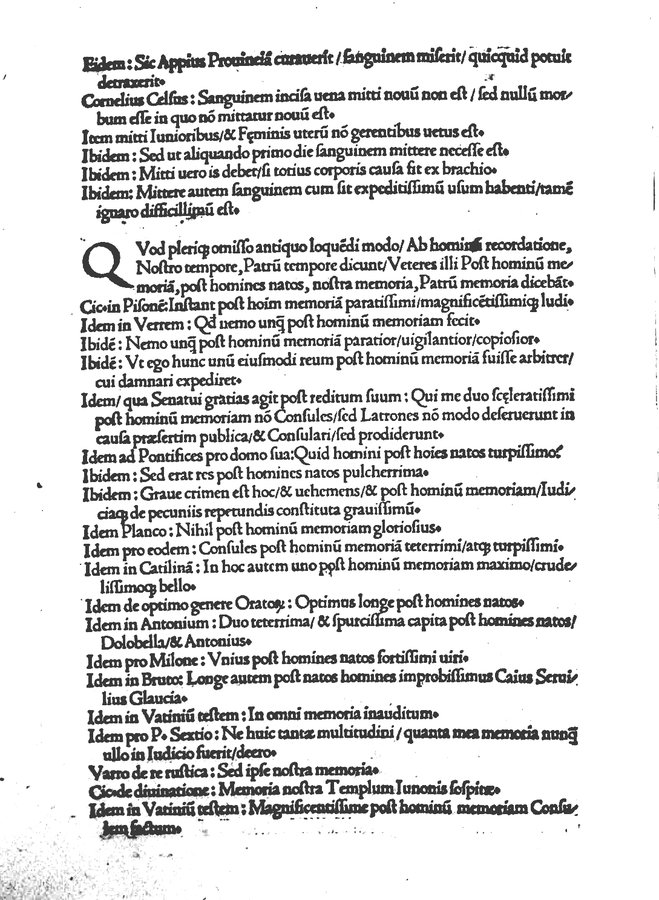 Eidem : Sic Appius Prouinciā curauerit / sanguinem miserit / quicquid potuit
detraxerit.
Cornelius Celsus : Sanguinem incisa uena mitti nouū non est / sed nullū mor/
bum esse in quo nō mittatur nouū est.
Item mitti Iunioribus/& Fęminis uterū nō gerentibus uetus est.
Ibidem : Sed ut aliquando primo die sanguinem mittere necesse est.
Ibidem : Mitti uero is debet/si totius corporis causa fit ex brachio.
Ibidem: Mittere autem sanguinem cum sit expeditissimū usum habenti/tamē
ignaro difficillimū est.
QVod pleriqꝫ omisso antiquo loquēdi modo/ Ab hominū recordatione,
Nostro tempore, Patrū tempore dicunt/Veteres illi Post hominū me/
moriā,post homines natos, nostra memoria, Patrū memoria dicebāt.
Cic.in Pisonē:Instant post hoīm memoriā paratissimi/magnificētissimiqꝫ ludi.
Idem in Verrem : Qđ nemo unqꝫ post hominū memoriam fecit.
Ibidē : Nemo unqꝫ post hominū memoriā paratior/uigilantior/copiosior.
Ibidē : Vt ego hunc unū eiusmodi reum post hominū memoriā fuisse arbitrer/
cui damnari expediret.
Idem/ qua Senatui gratias agit post reditum suum : Qui me duo scęleratissimi
post hominū memoriam nō Consules/sed Latrones nō modo deseruerunt in
causa præsertim publica/& Consulari/sed prodiderunt.
Idem ad Pontifices pro domo sua:Quid homini post hoies natos turpissimo?
Ibidem : Sed erat res post homines natos pulcherrima.
Ibidem : Graue crimen est hoc/& uehemens/& post hominū memoriam/Iudi/
ciaqꝫ de pecuniis repetundis constituta grauissimū.
Idem Planco : Nihil post hominū memoriam gloriosius.
Idem pro eodem : Consules post hominū memoriā teterrimi/atqꝫ turpissimi.
Idem in Catilinā : In hoc autem uno post hominū memoriam maximo/crude/
lissimoqꝫ bello.
Idem de optimo genere Oratoꝝ : Optimus longe post homines natos.
Idem in Antonium : Duo teterrima/ & spurcissima capita post homines natos/
Dolobella/& Antonius.
Idem pro Milone : Vnius post homines natos fortissimi uiri.
Idem in Bruto: Longe autem post natos homines improbissimus Caius Serui/
lius Glaucia.
Idem in Vatiniū testem : In omni memoria inauditum.
Idem pro P. Sextio : Ne huic tantæ multitudini / quanta mea memoria nunqꝫ
ullo in Iudicio fuerit/deero.
Varro de re rustica : Sed ipse nostra memoria.
Cic.de diuinatione : Memoria nostra Templum Iunonis sospitæ.
Idem in Vatiniū testem : Magnificentissime post hominū memoriam Consu/
lem factum.